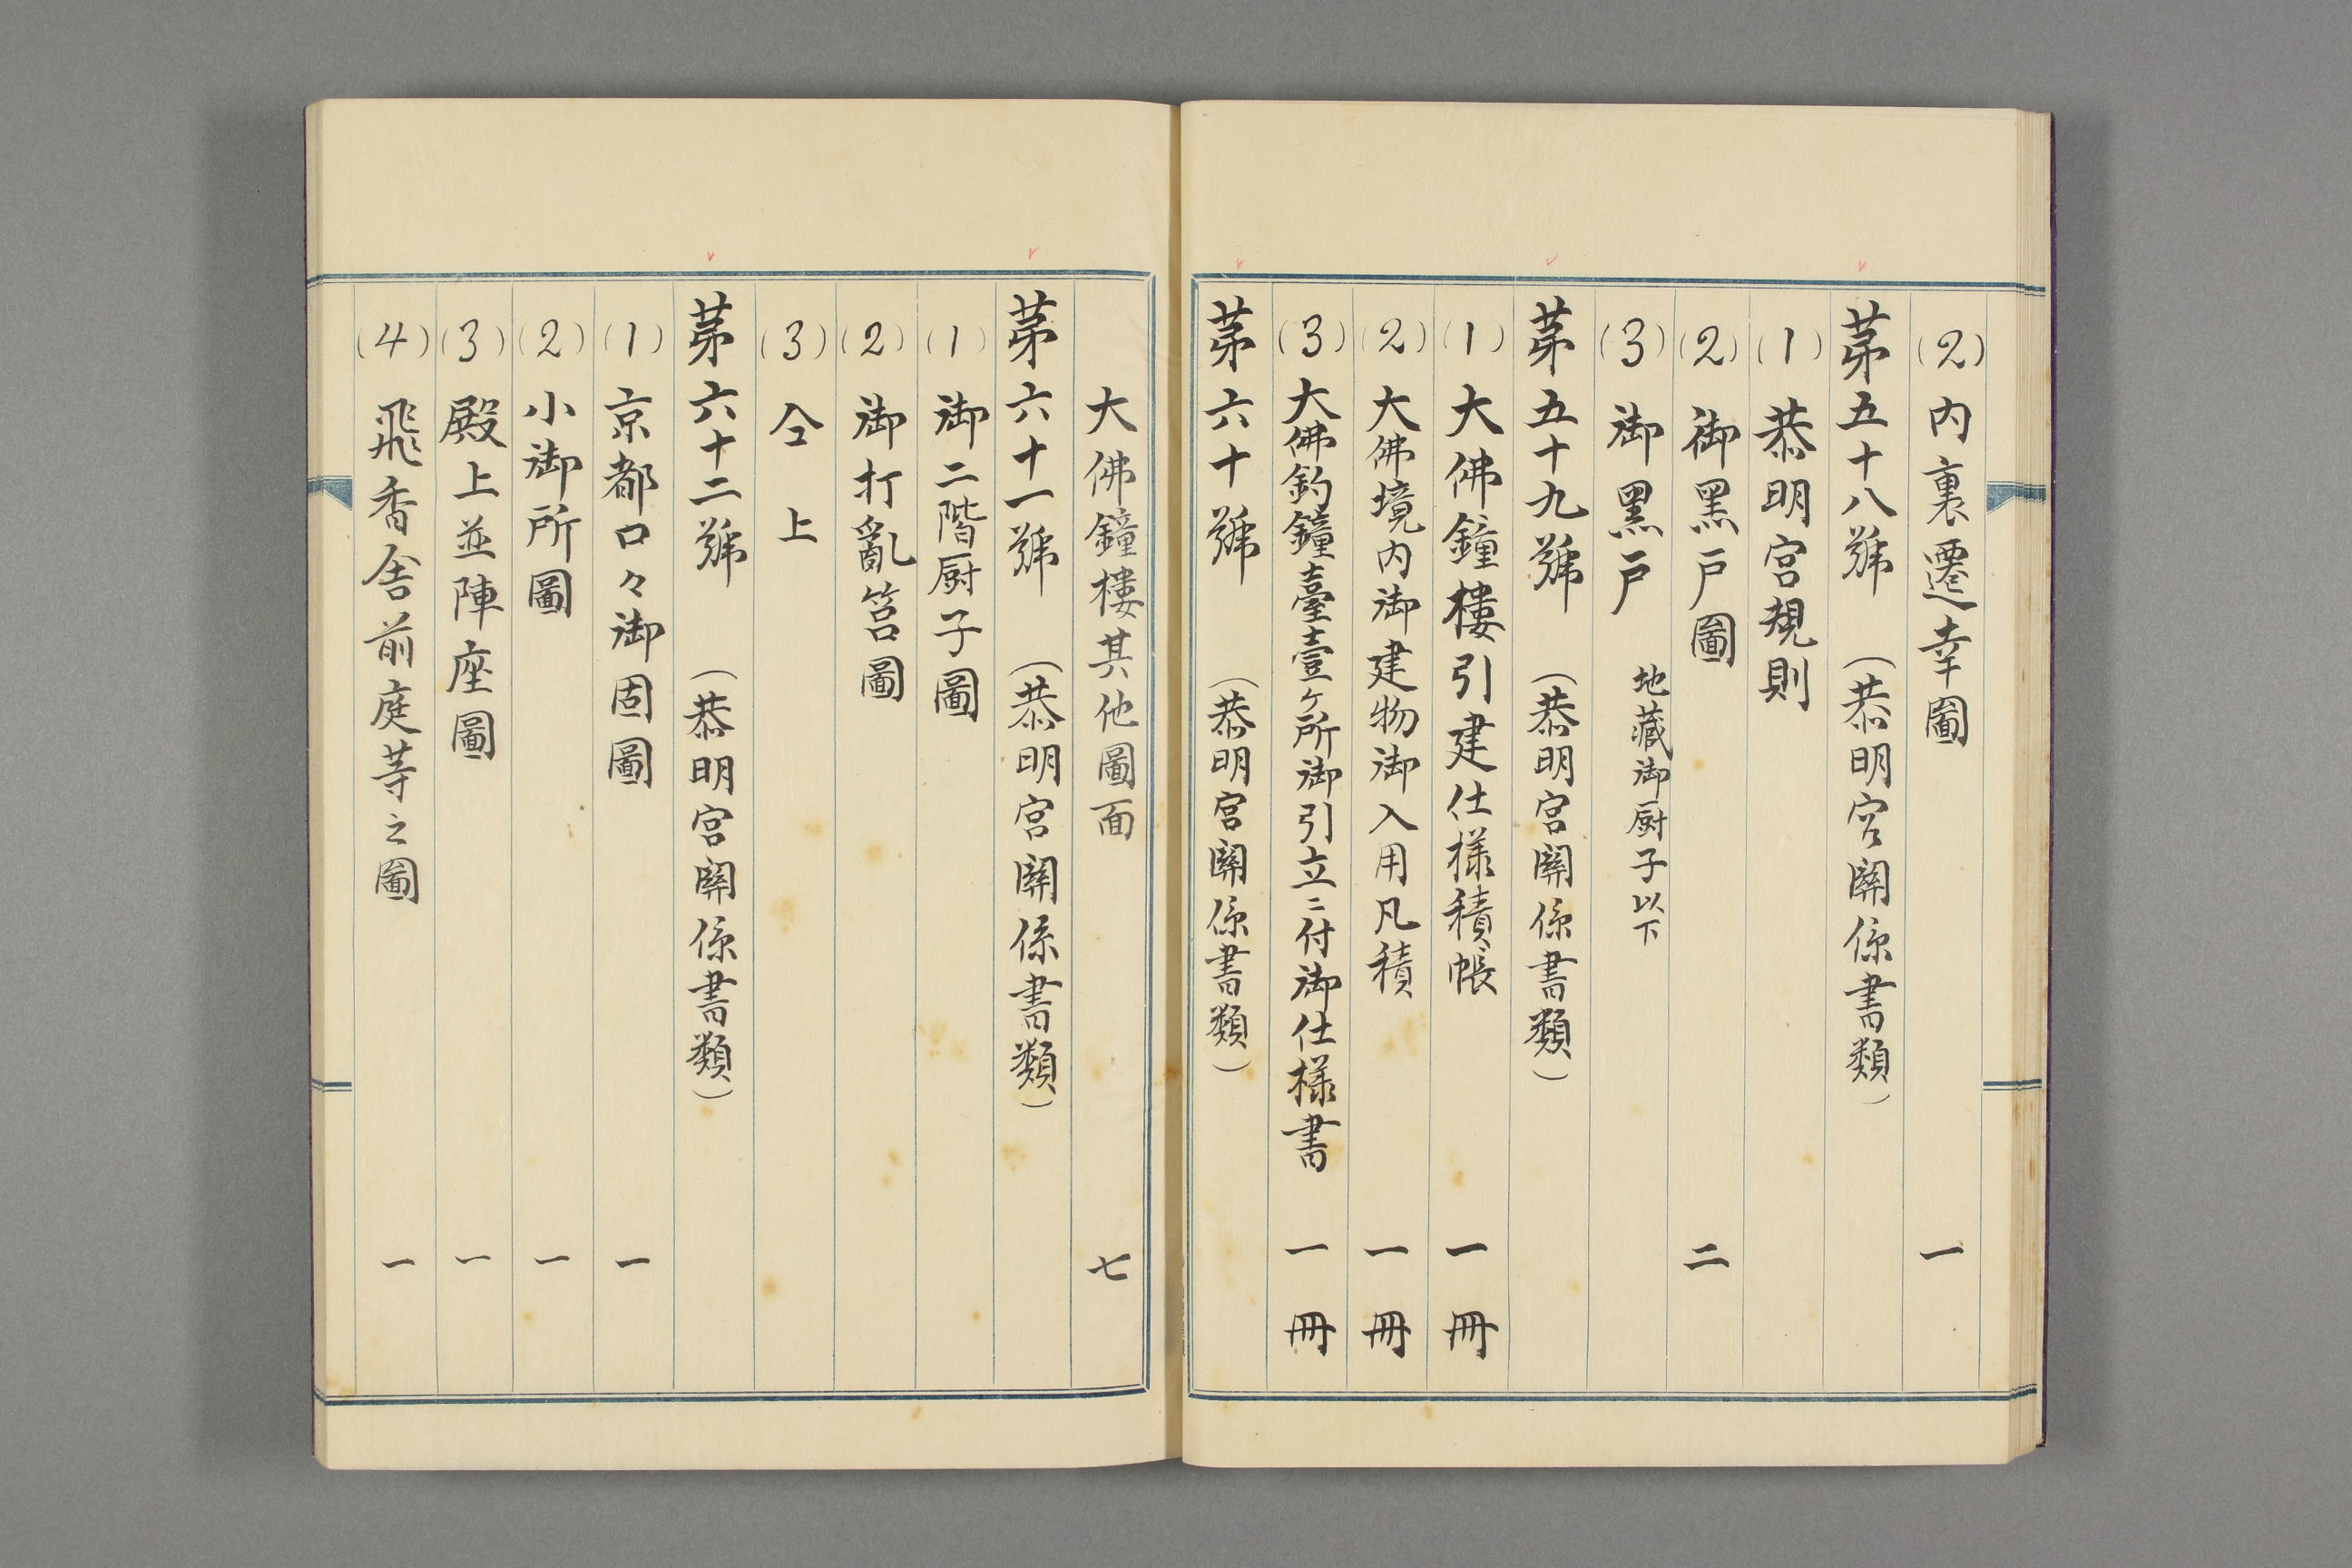 (2) 内裏遷幸圖 一
第五十八號 (恭明宮關係書類)
(1) 恭明宮規則
(2) 御黒戸圖 二
(3) 御黒戸 地藏御厨子以下
第五十九號 (恭明宮關係書類)
(1) 大佛鐘樓引建仕樣積帳 一冊
(2) 大佛境内御建物御入用凡積 一冊
(3) 大佛釣鐘臺壹ヶ所御引立ニ付御仕樣書 一冊
第六十號 (恭明宮關係書類)
大佛鐘樓其他圖面 七
第六十一號 (恭明宮關係書類)
(1) 御二階厨子圖
(2) 御打亂筥圖
(3) 仝上
第六十二號 (恭明宮關係書類)
(1) 京都口々御固圖 一
(2) 小御所圖 一
(3) 殿上並陣座圖 一
(4) 飛香舎前庭等之圖 一